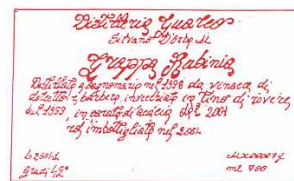 Distilleria Gualco
Silvano D'Orba AL
Grappa Rubinia
Distillato a bagnomaria nel 1998 da vinacce di
dolcetto e barbera invecchiato in tino di rovere
dal 1999 in carato di acacia dal 2001
ed imbottigliato nel 2004
ml 700